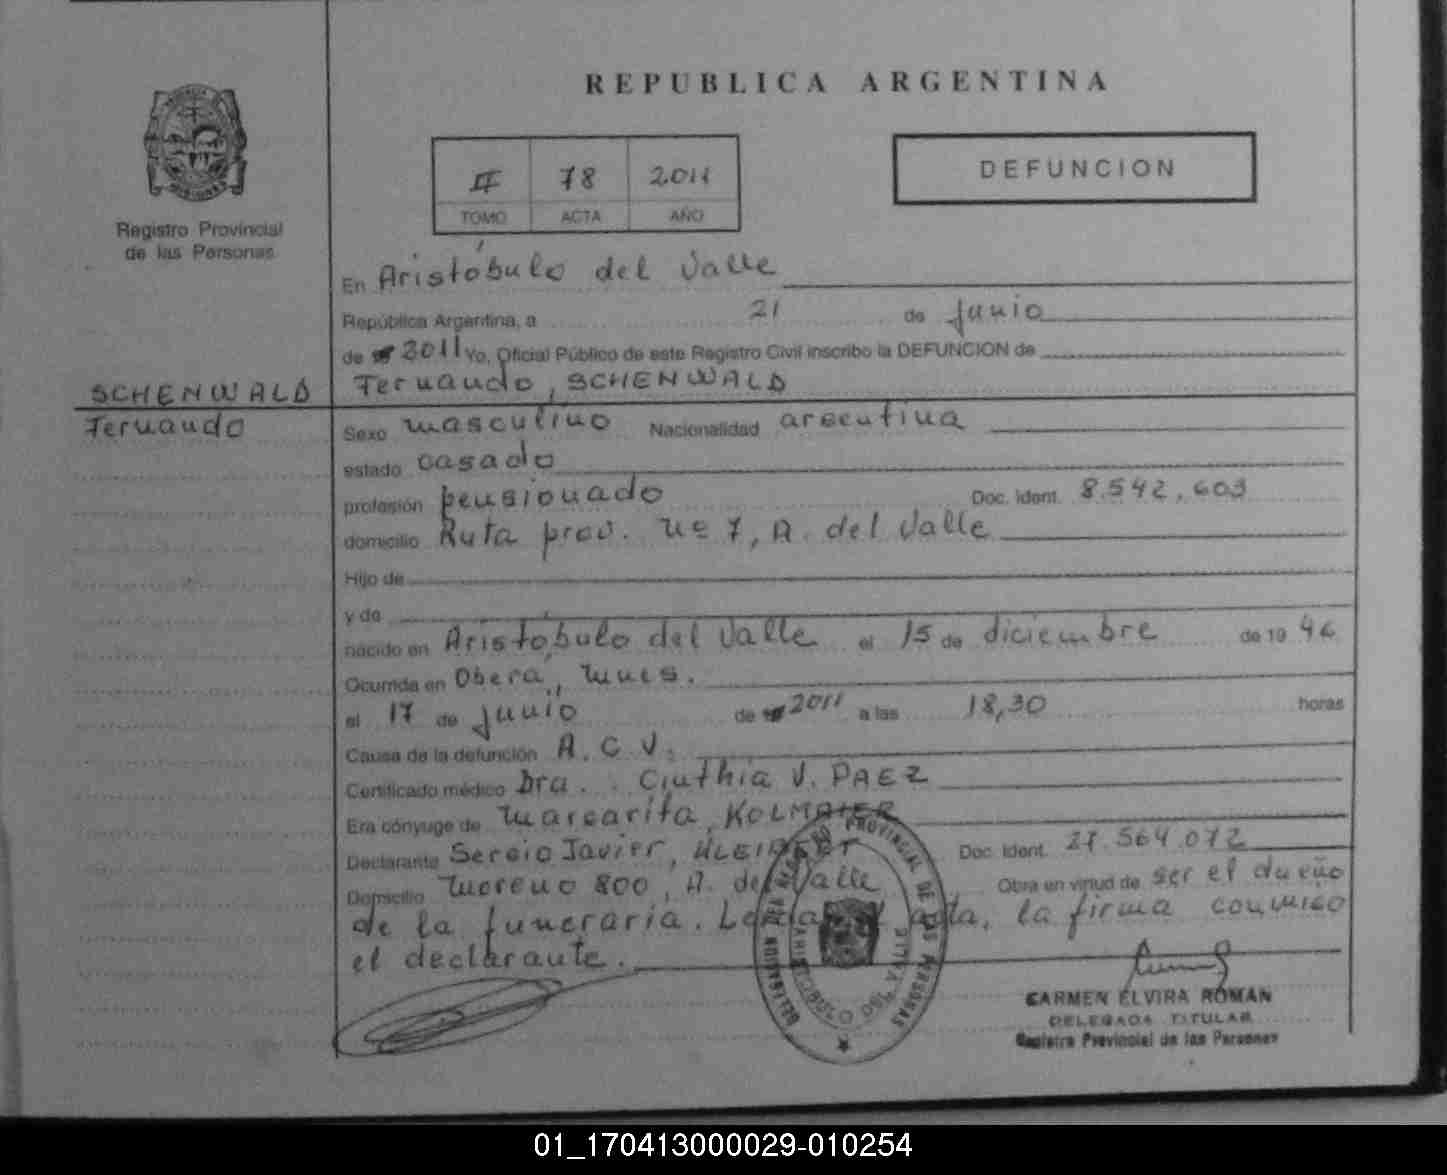 REPUBLICA ARGENTINA
Registro Provincial
de las Personas
II 78 2011
TOMO ACTA AÑO
DEFUNCION
En Aristóbulo del Valle
República Argentina, a 21 de junio
de 2011 Yo, Oficial Público de este Registro Civil inscribo la DEFUNCION de
SCHENWALD
Fernando
Fernando, SCHENWALD
Sexo masculino Nacionalidad argentina
estado casado
profesión pensionado Doc. Ident. 8.542.603
domicilio Ruta prov. Nº 7, A. del Valle
Hijo de
y de
nacido en Aristóbulo del Valle el 15 de diciembre de 19 46
Ocurrida en Oberá, Mnes.
el 17 de junio de 2011 a las 18,30 horas
Causa de la defunción A.C.V.
Certificado médico Dra. Cinthia V. PAEZ
Era cónyuge de Margarita, KOLMAIER
Declarante Sergio Javier, Doc. Ident. 27.564.072
Domicilio Moreno 800, A. del Valle Obra en virtud de ser el dueño
de la funeraria. Leída el acta, la firma conmigo
el declarante.
DELEGACION REGISTRO PROVINCIAL DE LAS PERSONAS
ARISTOBULO DEL VALLE
CARMEN ELVIRA ROMAN
DELEGADA TITULAR
Registro Provincial de las Personas
01_170413000029-010254